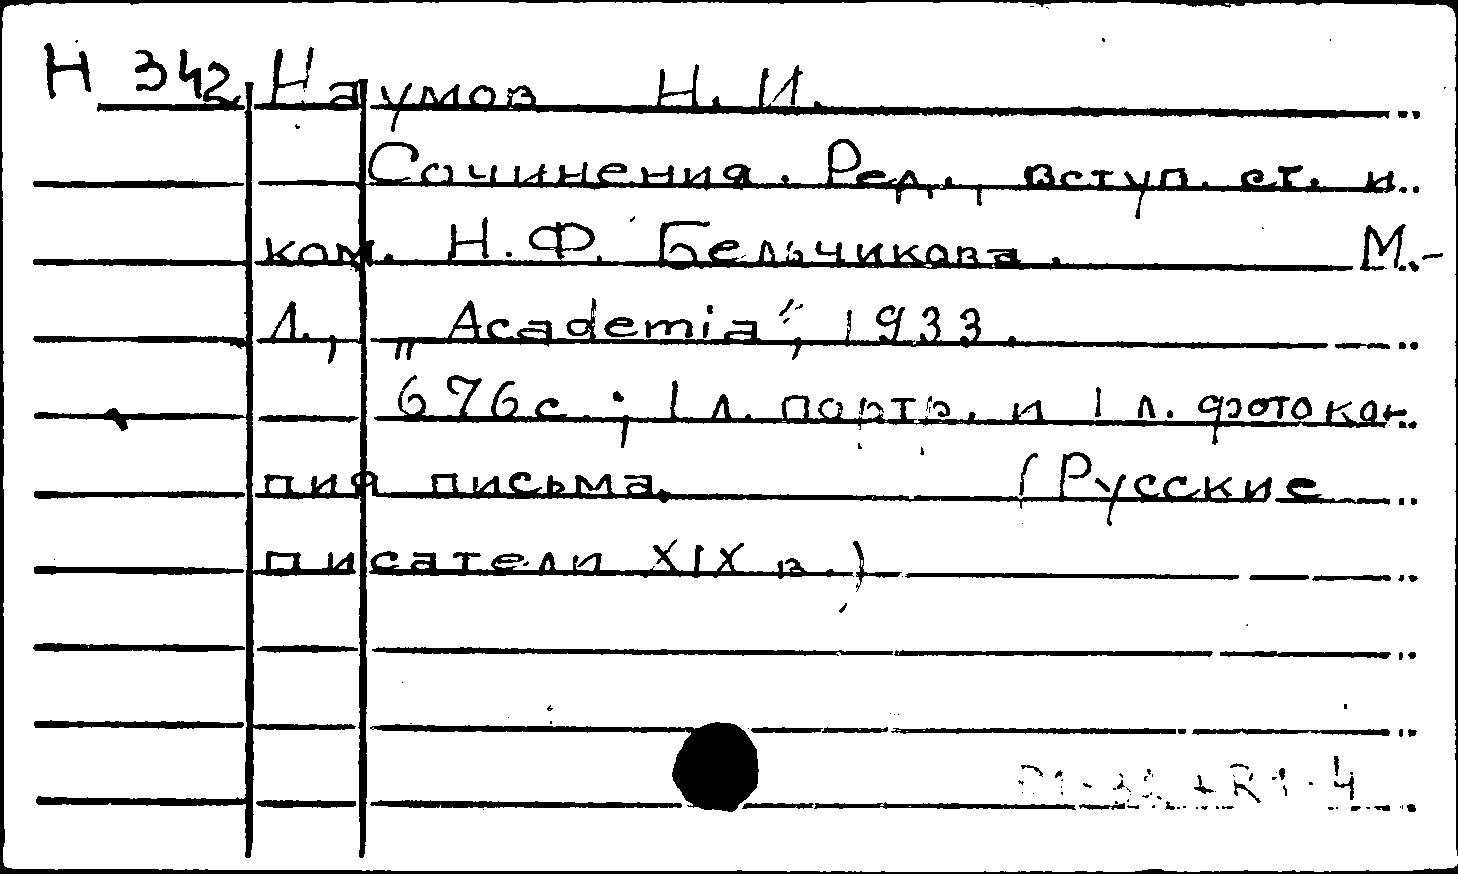 Н 342 Наумов Н. И.
Сочинения. Ред., вступ. ст. и
ком. Н.Ф. Бельчикова. М.-
Л., „Academia", 1933.
676с.; 1 л. портр. и 1 л. фотоко-
пия письма. (Русские
писатели XIX в.)